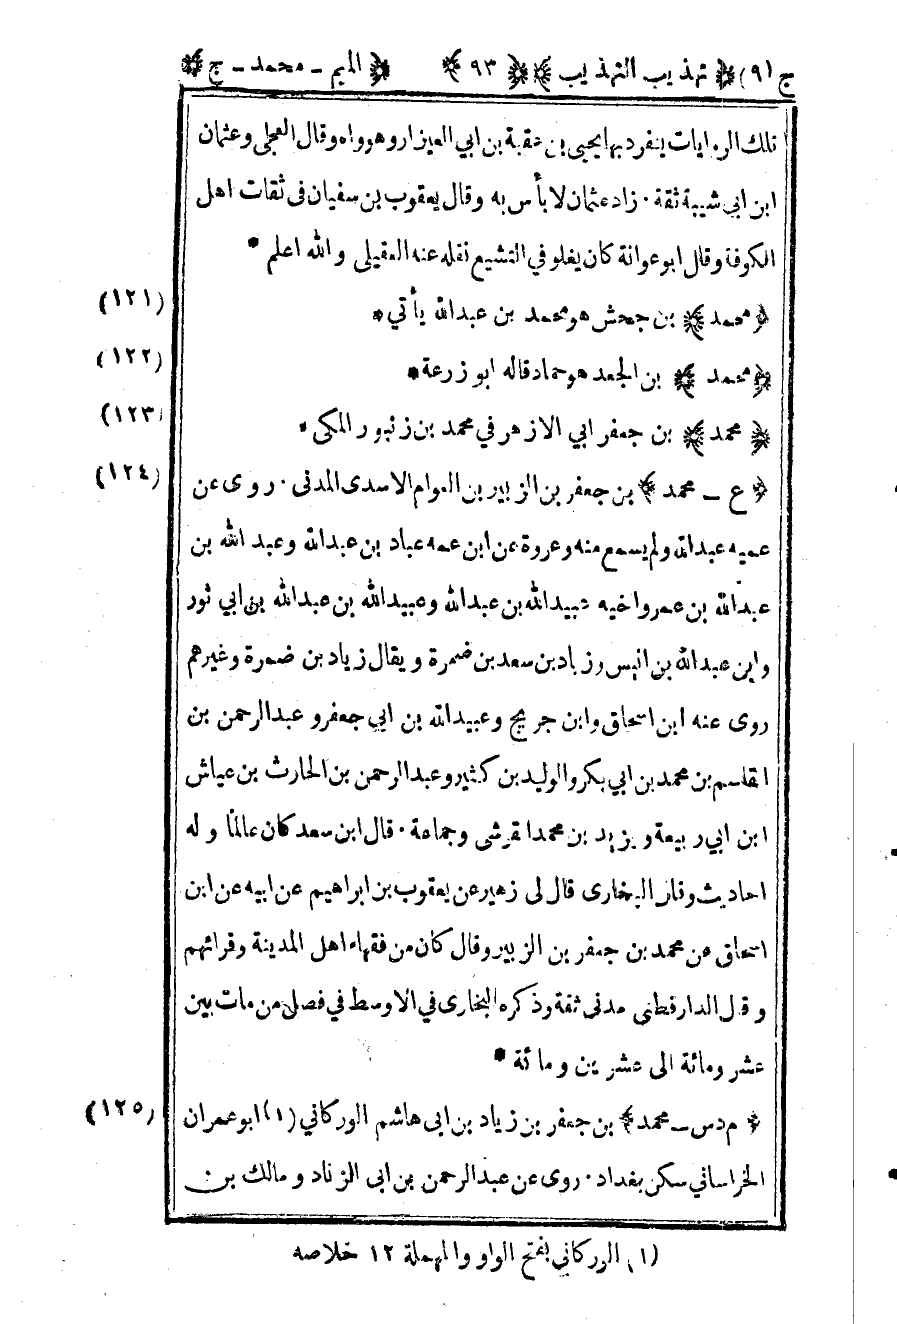 ج (٩) ﴿ تهذيب التهذيب ﴾ ﴿ ٩٣ ﴾ ﴿ الميم ـ محمد ـ ج ﴾
تلك الروايات ينفرد بها يحيى بن عقبة بن ابي العيزار وهو واه وقال العجلى وعثمان
ابن ابي شيبة ثقة · زاد عثمان لا بأس به وقال يعقوب بن سفيان فى ثقات اهل
الكوفة وقال ابو عوانة كان يغلو في التشيع نقله عنه العقيلى والله اعلم *
(١٢١) ﴿ محمد ﴾ بن جحش هو محمد بن عبدالله يأتي *
(١٢٢) ﴿ محمد ﴾ بن الجعد هو حماد قاله ابو زرعة *
(١٢٣) ﴿ محمد ﴾ بن جعفر ابي الازهر في محمد بن زنبور المكى *
(١٢٤) ﴿ ع ـ محمد ﴾ بن جعفر بن الزبير بن العوام الاسدى المدنى · روى عن
عميه عبدالله ولم يسمع منه وعروة عن ابن عمه عباد بن عبدالله وعبد الله بن
عبدالله بن عمر واخيه عبيدالله بن عبدالله وعبيدالله بن عبدالله بن ابي ثور
وابن عبدالله بن انيس وزياد بن سعد بن ضمرة ويقال زياد بن ضمرة وغيرهم
روى عنه ابن اسحاق وابن جريج وعبيدالله بن ابي جعفر و عبدالرحمن بن
القاسم بن محمد بن ابي بكر والوليد بن كثير وعبدالرحمن بن الحارث بن عياش
ابن ابي ربيعة ويزيد بن محمد القرشى وجماعة · قال ابن سعد كان عالما وله
احاديث وقال البخارى قال لى زهير عن يعقوب بن ابراهيم عن ابيه عن ابن
اسحاق عن محمد بن جعفر بن الزبير وقال كان من فقهاء اهل المدينة وقرائهم
وقال الدارقطنى مدنى ثقة وذكره البخارى في الاوسط في فصل من مات بين
عشر ومائة الى عشرين ومائة *
(١٢٥) ﴿ م د س ـ محمد ﴾ بن جعفر بن زياد بن ابى هاشم الوركاني (١) ابو عمران
الخراساني سكن بغداد · روى عن عبدالرحمن بن ابى الزناد ومالك بن
(١) الوركاني بفتح الواو والمهملة ١٢ خلاصه